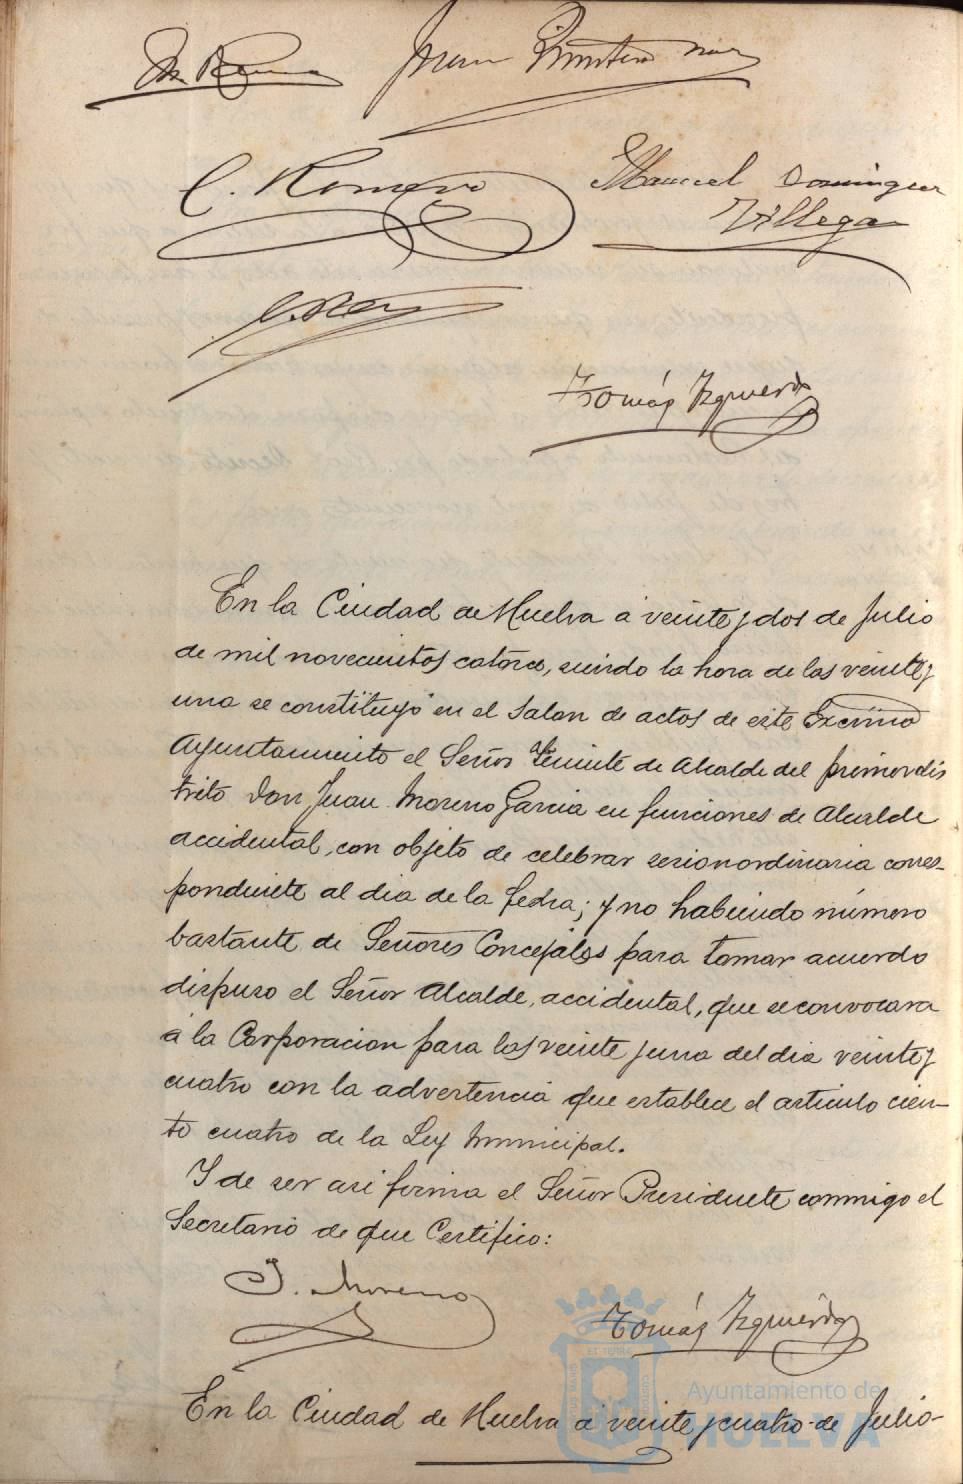 Juan Quintero
C. Romero
Manuel Dominguez
Villegas
Tomás Izquierdo
En la Ciudad de Huelva á veinte y dos de Julio
de mil novecientos catorce, siendo la hora de las veinte y
una se constituyó en el Salon de actos de este Excmo
Ayuntamiento el Señor Teniente de Alcalde del primer dis
trito Don Juan Moreno Garcia en funciones de Alcalde
accidental, con objeto de celebrar sesion ordinaria corres-
pondiente al dia de la fecha; y no habiendo número
bastante de Señores Concejales para tomar acuerdo
dispuso el Señor Alcalde, accidental, que se convocara
á la Corporacion para las veinte y una del dia veinte y
cuatro con la advertencia que establece el articulo cien-
to cuatro de la Ley Municipal.
Y de ser asi firma el Señor Presidente conmigo el
Secretario de que Certifico:
J. Moreno
Tomás Izquierdo
En la Ciudad de Huelva á veinte y cuatro de Julio-
Ayuntamiento de
HUELVA